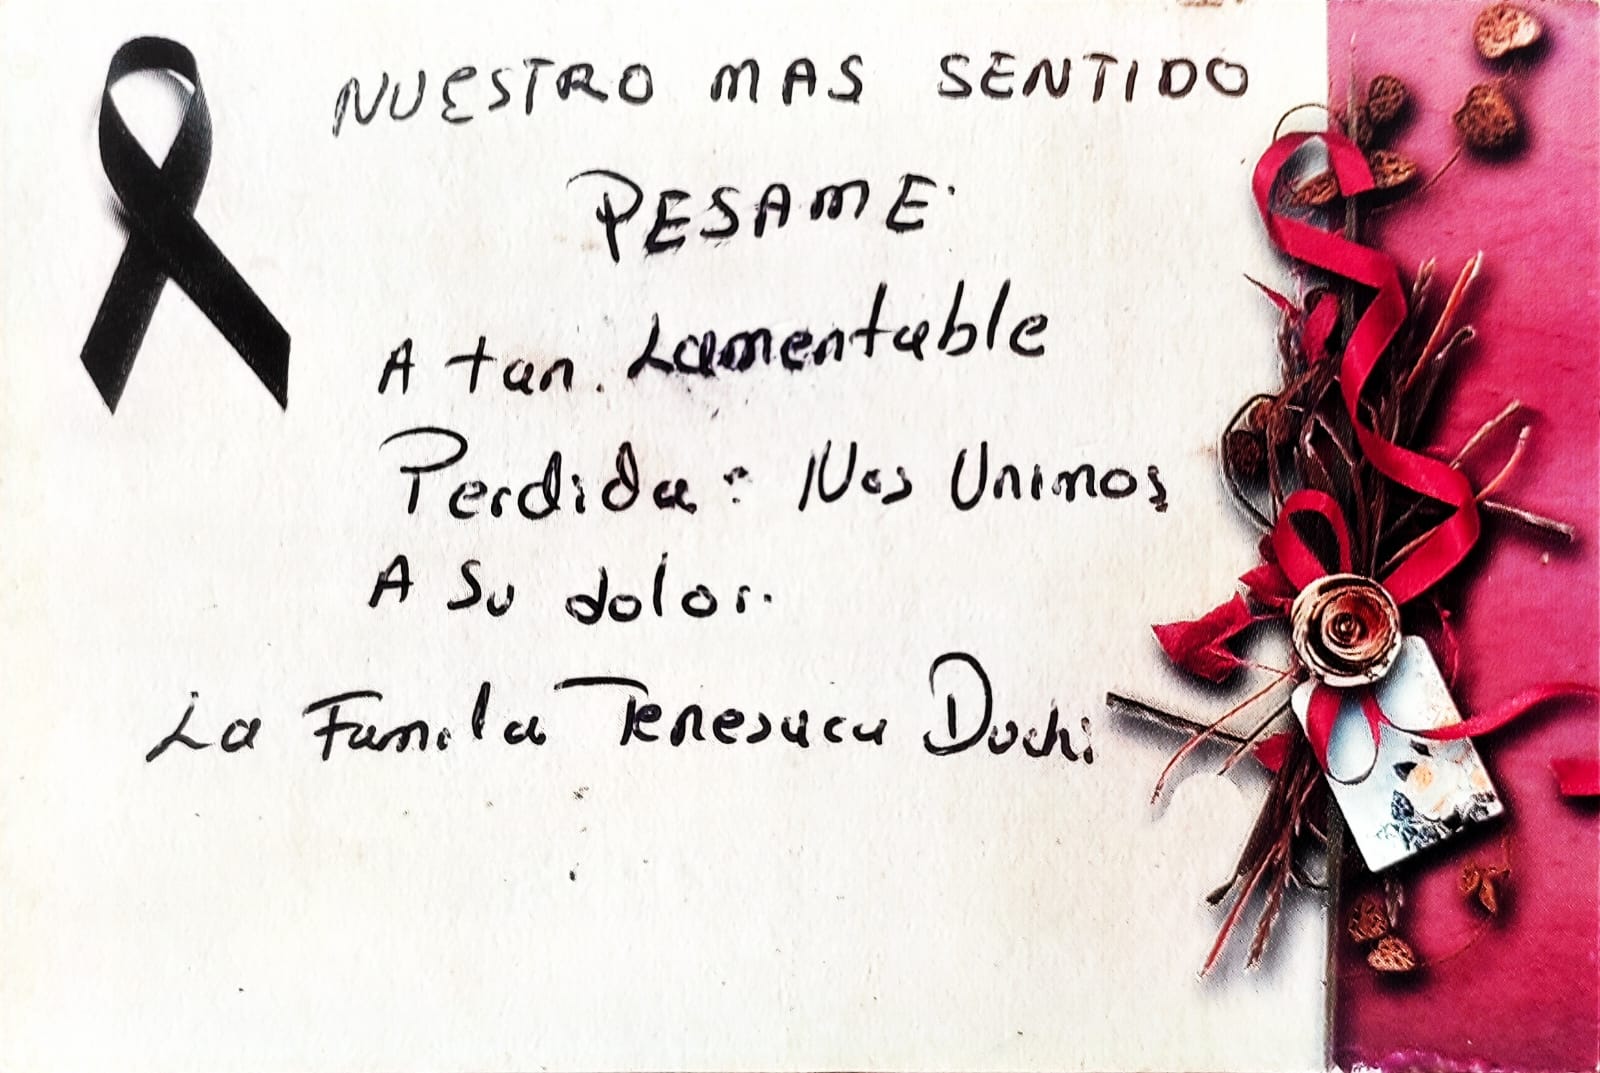 NUESTRO MAS SENTIDO
PESAME.
A tan. Lamentable
Perdida: Nos Unimos
A Su dolor.
La Familia Tenesaca Duchi